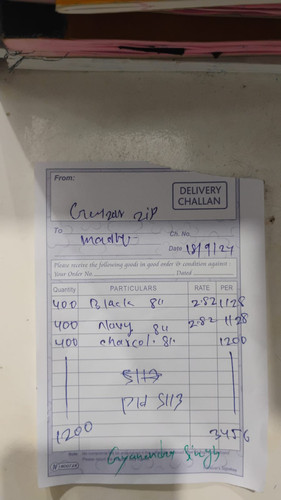 From:
DELIVERY CHALLAN
zip
To
Madhu
Ch. No.
Date 18/9/24
Please receive the following goods in good order & condition against
Your Order No. Dated
Quantity PARTICULARS RATE PER
400 Black 8" 2.82 1128
400 Navy 8" 2.82 1128
400 charcol. 8" 1200
Pld 5113
1200 3456
Gyanender Singh